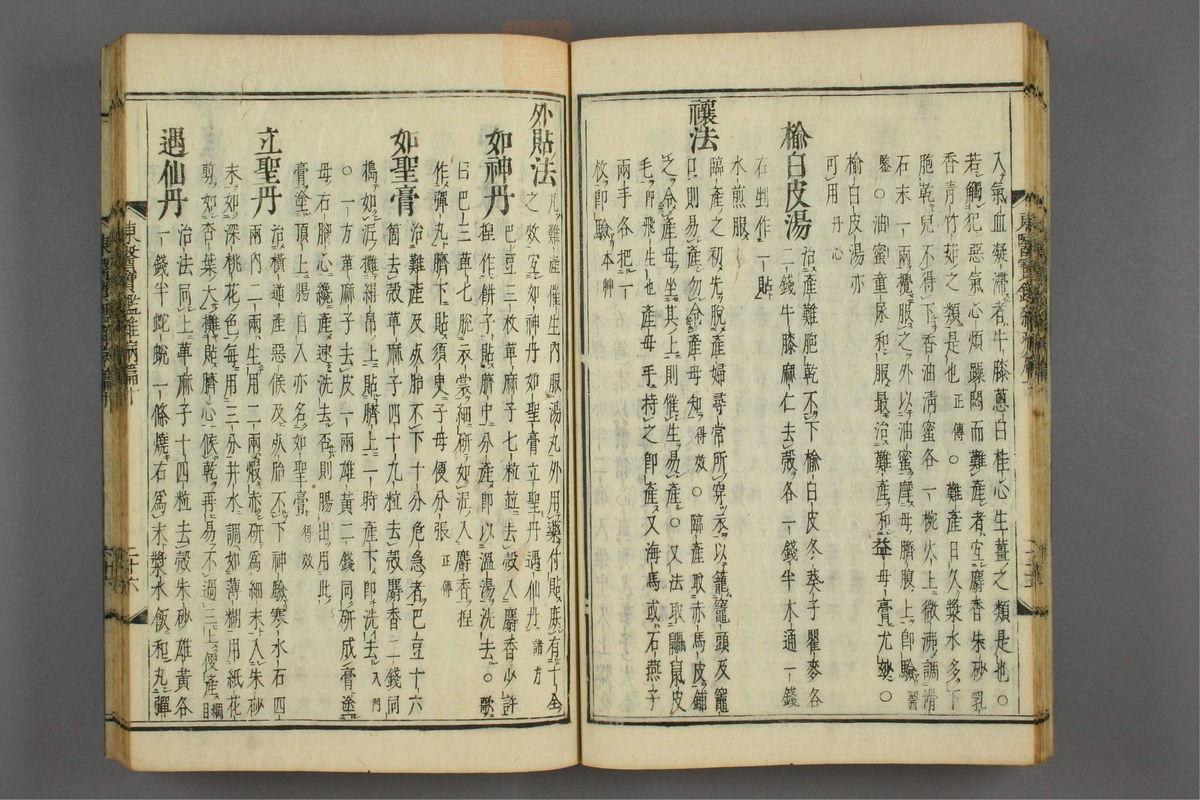 入氣血凝滯者牛膝葱白桂心生薑之類是也○
若觸犯惡氣心煩躁悶而難產者宜麝香朱砂乳
香青竹茹之類是也正傳○難產日久漿水多下
胞乾兒不得下香油淸蜜各一椀火上微沸調滑
石末一兩攪服之外以油蜜摩母臍腹上卽驗醫
鑒○油蜜童尿和服最治難產和益母膏尤妙○
榆白皮湯亦
可用丹心
榆白皮湯
治產難胞乾不下榆白皮冬葵子瞿麥各
二錢牛膝麻仁去殼各一錢半木通一錢
右剉作一貼
水煎服
禳法
臨產之初先脫產婦尋常所穿衣以籠竈頭及竈
口則易產勿令產母知得效○臨產取赤馬皮鋪
之令產母坐其上則催生易產○又法取鼠皮
毛卽飛生也產母手持之卽產又海馬或石燕子
兩手各把一
枚卽驗本草
外貼法
凡難產催生內服湯丸外用藥付貼庶有十全
之效宜如神丹如聖膏立聖丹遇仙丹諸方
如神丹
巴豆三枚萆麻子七粒並去殼入麝香少許
捏作餠子貼臍中分產卽以溫湯洗去○歌
曰巴三萆七脫衣裳細硏如泥入麝香捏
作彈丸臍下貼須臾子母便分張正傳
如聖膏
治難產及死胎不下十分危急者巴豆十六
箇去殼萆麻子四十九粒去殼麝香二錢同
搗如泥攤絹帛上貼臍上一時產下卽洗去入門
○一方萆麻子去皮一兩雄黃二錢同硏成膏塗
母右脚心纔產速洗去否則腸出用此
膏塗頂上腸自入亦名如聖膏得效
立聖丹
治橫逆產惡候及死胎不下神驗寒水石四
兩內二兩生用二兩煆赤硏爲細末入朱砂
末如深桃花色每用三分井水調如薄糊用紙花
剪如杏葉大攤貼臍心候乾再易不過三上便產綱目
遇仙丹
治法同上萆麻子十四粒去殼朱砂雄黃各
一錢半蛇蛻一條燒右爲末漿水飯和丸彈
東醫寶鑑雜病篇十
二十六